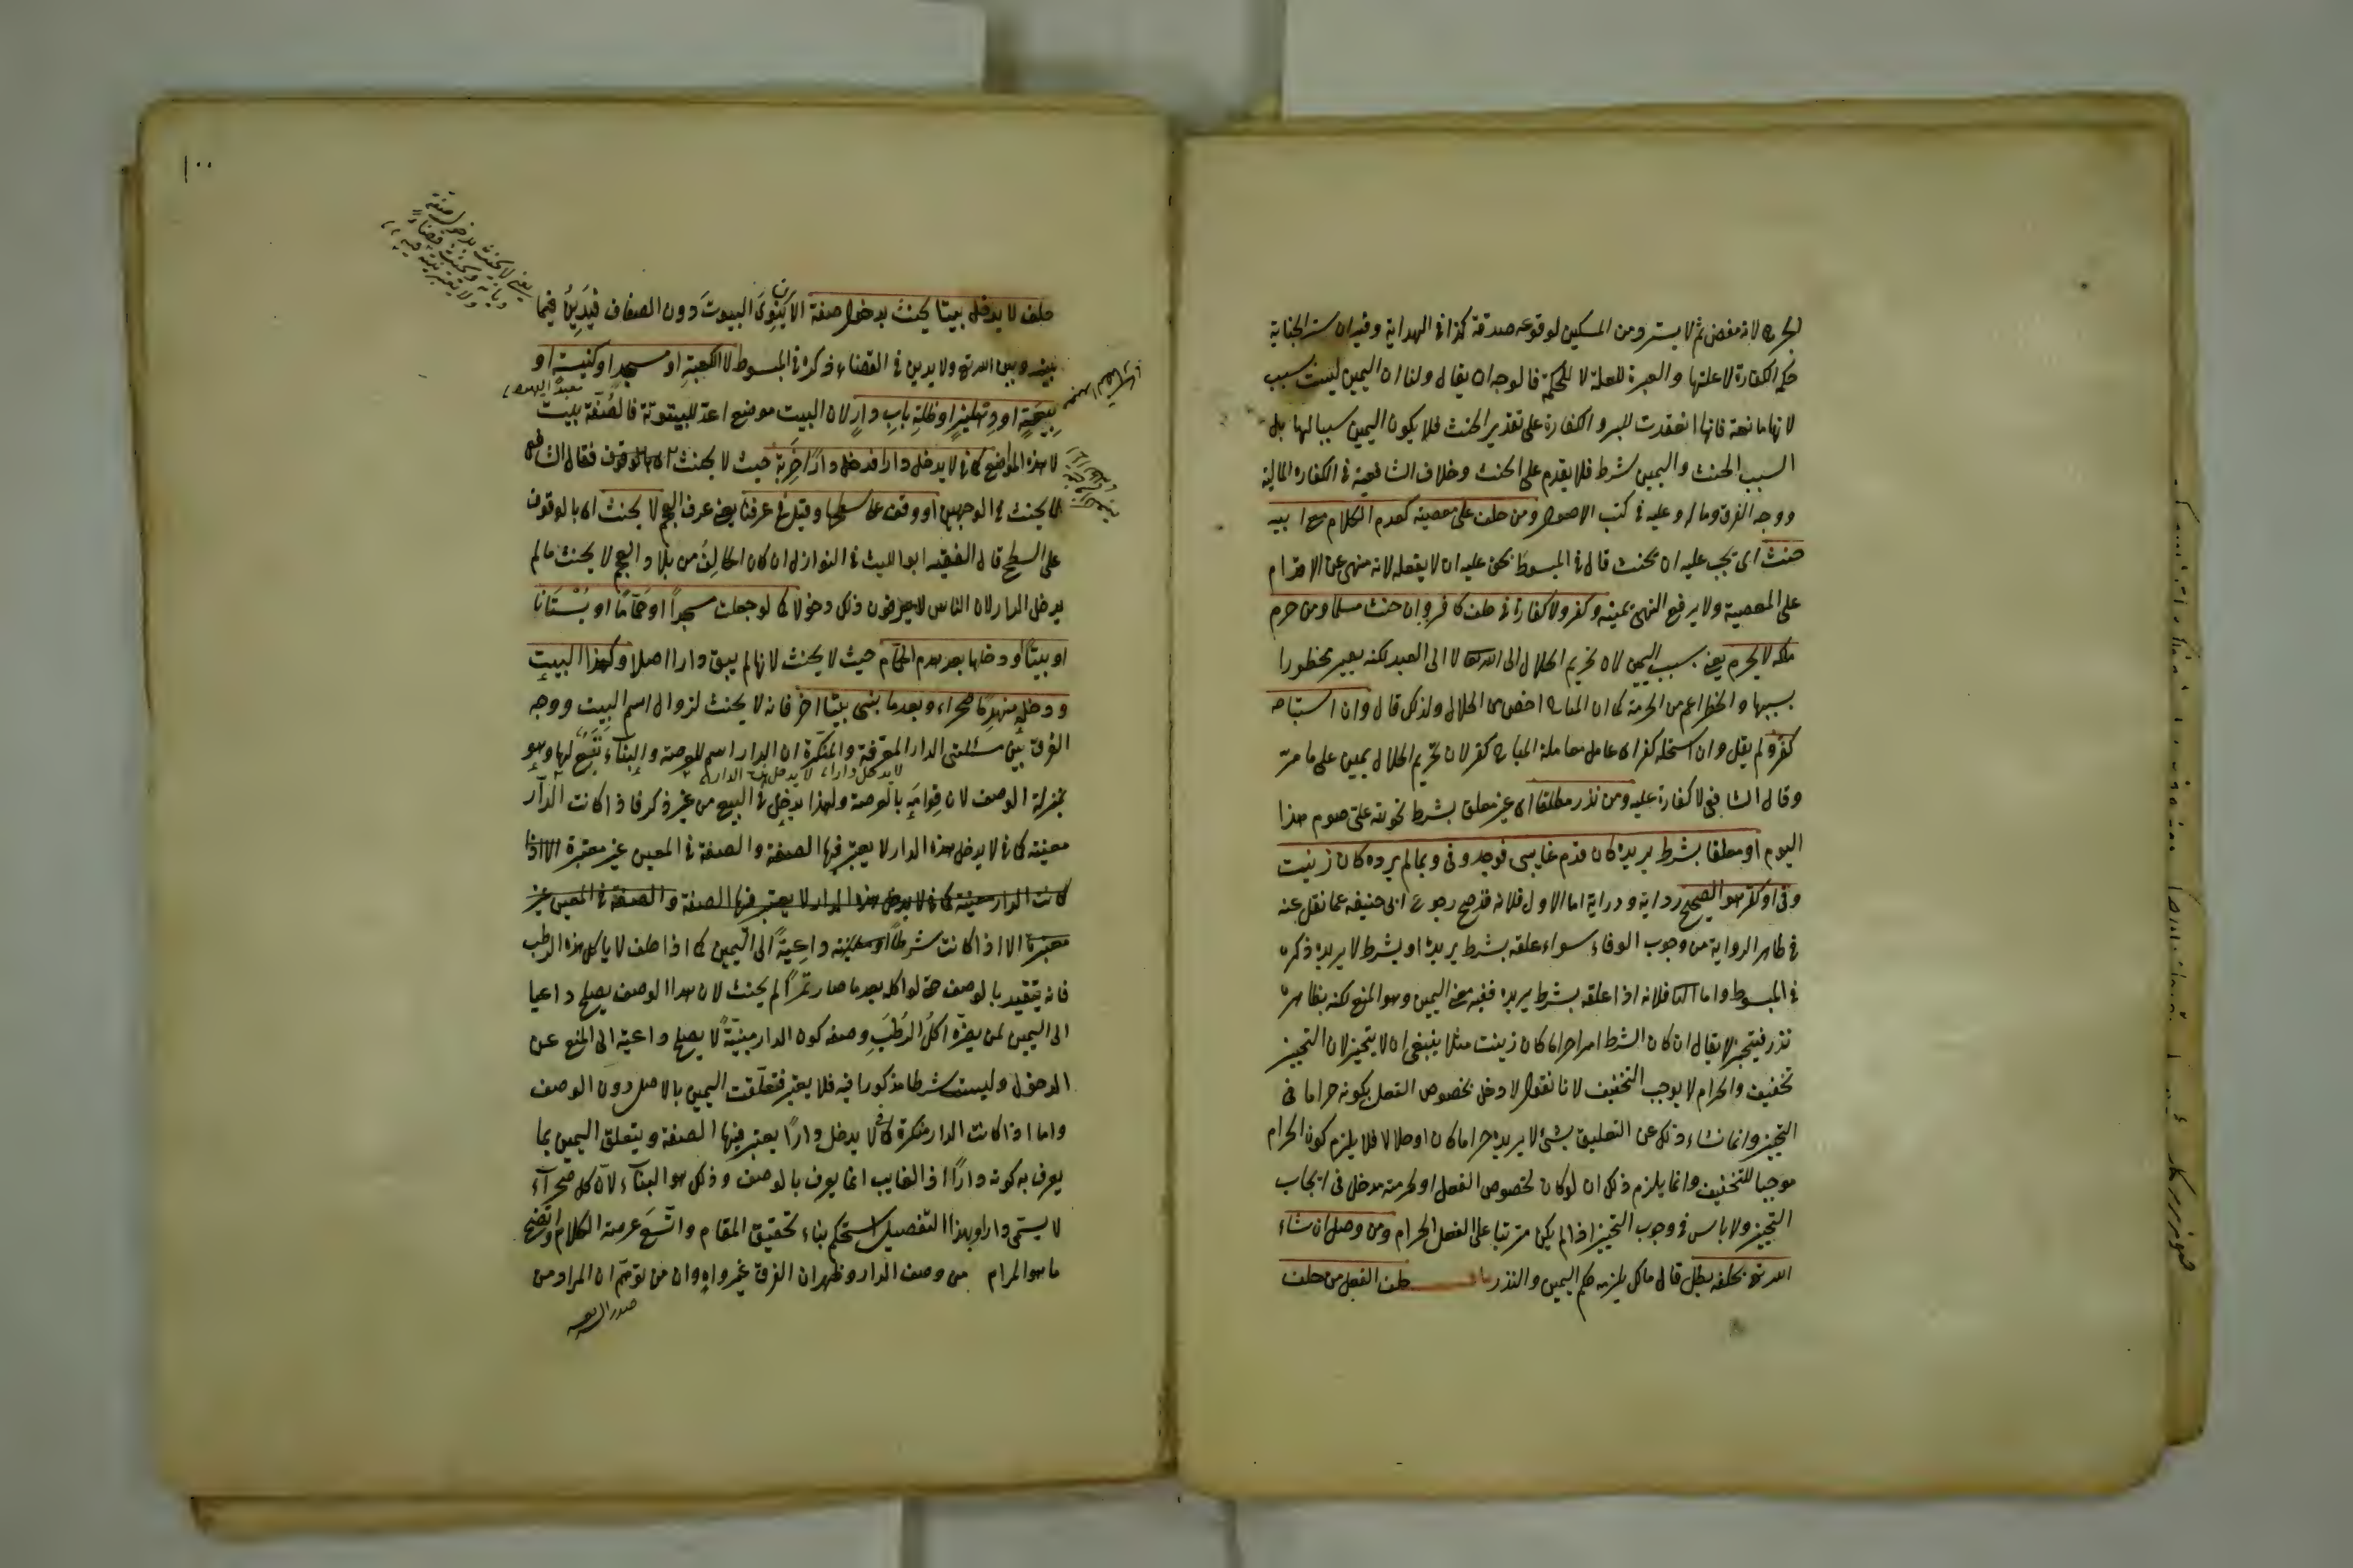 الجرح لانه مفض ثم لا يسترد من المسكين لوقوعه صدقة كذا في الهداية وفيه ان ستر الجناية
حكم الكفارة لا علتها والعبرة للعلة لا للحكمة فالوجه ان يقال ولنا ان اليمين ليست بسبب
لانها مانعة فانها انعقدت للبر والكفارة على تقدير الحنث فلا يكون اليمين سببا لها بل
السبب الحنث واليمين شرط فلا يقدم على الحنث وخلاف الشافعية في الكفارة المالية
ووجه الفرق وما له وعليه في كتب الاصول ومن حلف على معصية كعدم الكلام مع ابيه
حنث اي يجب عليه ان يحنث قال في المبسوط يحق عليه ان لا يفعله لانه منهى عن الاقدام
على المعصية ولا يرفع النهي يمينه وكفر ولا كفارة في حلف كافر وان حنث مسلما ومن حرم
ملكه لا يحرم يعني بسبب اليمين لان تحريم الحلال الى الله تعالى لا الى العبد لكنه يصير محظورا
بسببها والحظر اعم من الحرمة كما ان المباح اخص من الحلال ولذلك قال وان استباحه
كفر ولم يقل وان استحله كفر اي عامل معاملة المباح كفر لان تحريم الحلال يمين على ما مر
وقال الشافعي لا كفارة عليه ومن نذر مطلقا اي غير معلق بشرط نحو لله على صوم هذا
اليوم او معلقا بشرط يريده كان قدم غايبي فوجد وفى وبما لم يرده كان زنيت
وفى او كفر هو الصحيح رواية ودراية اما الاول فلانه قد صح رجوع ابي حنيفه عما نقل عنه
في ظاهر الرواية من وجوب الوفاء سواء علقه بشرط يريده او بشرط لا يريده ذكره
في المبسوط واما الثاني فلانه اذا علقه بشرط يريده ففيه معنى اليمين وهو المنع لكنه بظاهره
نذر فيتخير لا يقال ان كان الشرط امرا حراما كان زنيت مثلا ينبغي ان لا يتخير لان التخيير
تخفيف والحرام لا يوجب التخفيف لانا نقول لا دخل بخصوص الفعل بكونه حراما في
التخيير وانما نشاء ذلك عن التعليق بشئ لا يريده حراما كان او حلالا فلا يلزم كون الحرام
موجبا للتخفيف وانما يلزم ذلك ان لو كان لخصوص الفعل او لحرمته مدخل في ايجاب
التخيير ولا باس في وجوب التخيير اذا لم يكن مترتبا على الفعل الحرام ومن وصل ان شاء
الله تع بحلفه بطل قال ما كل يلزمه حكم اليمين والنذر باب حلف الفعل من حلف
١٠٠
يعني لا يحنث بدخول صفة
حلف لا يدخل بيتا يحنث بدخول صفة الا ان ينوي البيوت دون الصفاف فيدين فيما
بينه وبين الله تع ولا يدين في القضاء ذكره في المبسوط لا الكعبة او مسجد او كنيسة او
معبد اليهود
بيعة او دهليز او ظلة باب دار لان البيت موضع اعد للبيتوتة فالصفة بيت
لا هذه المواضع كما في لا يدخل دارا فدخل دارا خربة حيث لا يحنث فقال الشافعي
لا يحنث في الوجهين او وقف على سطحها وقيل في عرفنا يعني عرف العجم لا يحنث اي بالوقوف
على السطح قال الفقيه ابو الليث في النوازل ان كان الحالف من بلاد العجم لا يحنث ما لم
يدخل الدار لان الناس لا يعرفون ذلك دخولا كما لو جعلت مسجدا او حماما او بستانا
او بيتا او دخلها بعد هدم الحمام حيث لا يحنث لانها لم يبق دارا اصلا وكهذا البيت
ودخله منهدما صحراء وبعد ما بنى بيتا اخر فانه لا يحنث لزوال اسم البيت ووجه
الفرق بين مسئلتي الدار المعرفة والمنكرة ان الدار اسم للعرصة والبناء تبع لها وهو
لا يدخل دارا لا يدخل هذه الدار
بمنزلة الوصف لان قوامه بالعرصة ولهذا يدخل في البيع من غير ذكر فاذا كانت الدار
معينة كما في لا يدخل هذه الدار لا يعتبر فيها الصفة والصفة في المعين غير معتبرة الا اذا
كانت الدار معينة كما في لا يدخل هذه الدار لا يعتبر فيها الصفة والصفة في المعين غير
معتبرة الا اذا كانت شرطا او داعية الى اليمين كما اذا حلف لا ياكل هذه الرطب
فانه يتقيد بالوصف حتى لو اكله بعد ما صار تمرا لم يحنث لان هذا الوصف يصلح داعيا
الى اليمين لمن يضره اكل الرطب وصفه كون الدار مبنية لا يصلح داعية الى المنع عن
الدخول وليست شرطا مذكورا فيه فلا يعتبر فتعلقت اليمين بالاصل دون الوصف
واما اذا كانت الدار منكرة كما في لا يدخل دارا يعتبر فيها الصفة ويتعلق اليمين بما
يعرف به كونه دارا اذ الغايب انما يعرف بالوصف وذلك هو البناء لان كل صحراء
لا يسمى دارا وبهذا التفصيل استحكم بناء تحقيق المقام واتسع عرصة الكلام واتضح
ما هو المرام من وصف الدار وظهر ان الفرق غير واه وان من توهم ان المراد من
صدر الشريعة